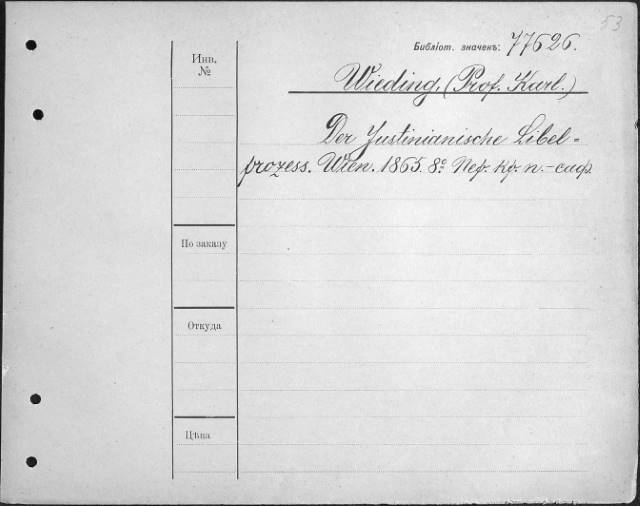 53
Библіот. значекъ: 77626.
Инв.
№
Wieding, (Prof. Karl.)
Der Justinianische Libel=
prozess. Wien. 1865. 8º
По заказу
Откуда
Цѣна